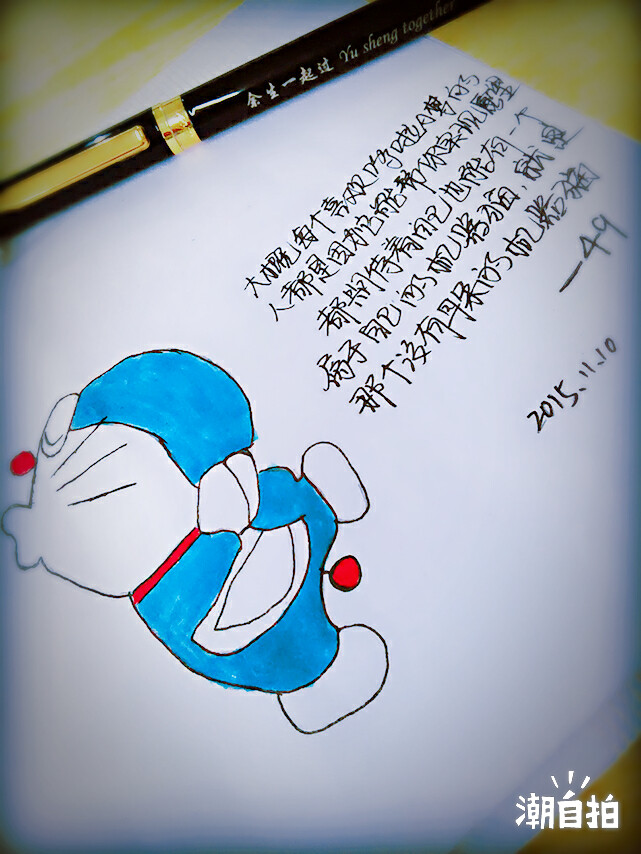 余生一起过 Yu sheng together
大概每个喜欢哆啦A梦的
人都是因为它能帮你实现愿望
都期待着自己也能有一个
属于自己的机器猫,就是
那个没有耳朵的机器猫
—49
2015.11.10
潮自拍